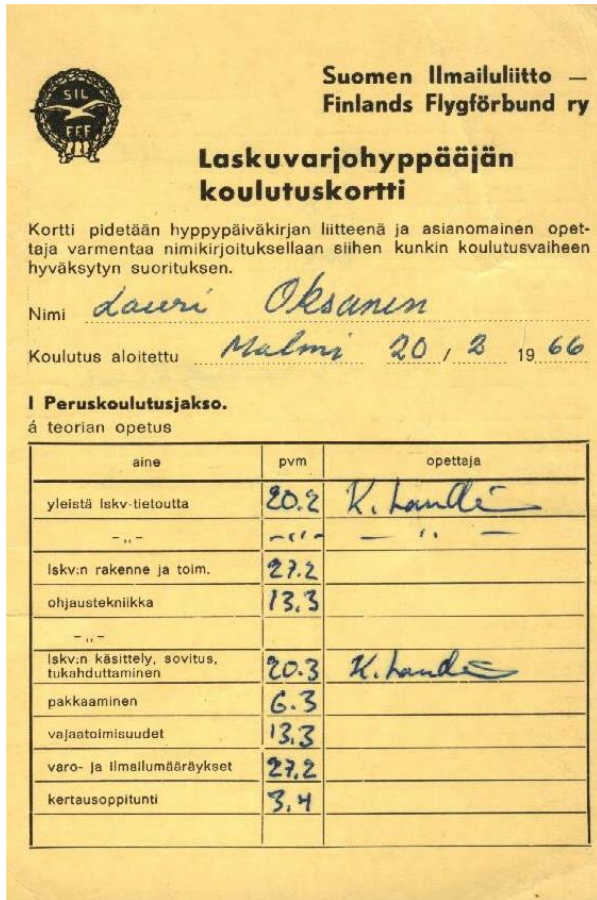 SIL
FFF
Suomen Ilmailuliitto —
Finlands Flygförbund ry
Laskuvarjohyppääjän
koulutuskortti
Kortti pidetään hyppypäiväkirjan liitteenä ja asianomainen opet-
taja varmentaa nimikirjoituksellaan siihen kunkin koulutusvaiheen
hyväksytyn suorituksen.
Nimi Lauri Oksanen
Koulutus aloitettu Malmi 20 / 2 19 66
I Peruskoulutusjakso.
á teorian opetus
aine pvm opettaja
yleistä lskv-tietoutta 20.2 K.
– „ – – „ – – „ –
lskv:n rakenne ja toim. 27.2
ohjaustekniikka 13.3
– „ –
lskv:n käsittely, sovitus,
tukahduttaminen 20.3 K.
pakkaaminen 6.3
vajaatoimisuudet 13.3
varo- ja ilmailumääräykset 27.2
kertausoppitunti 3.4